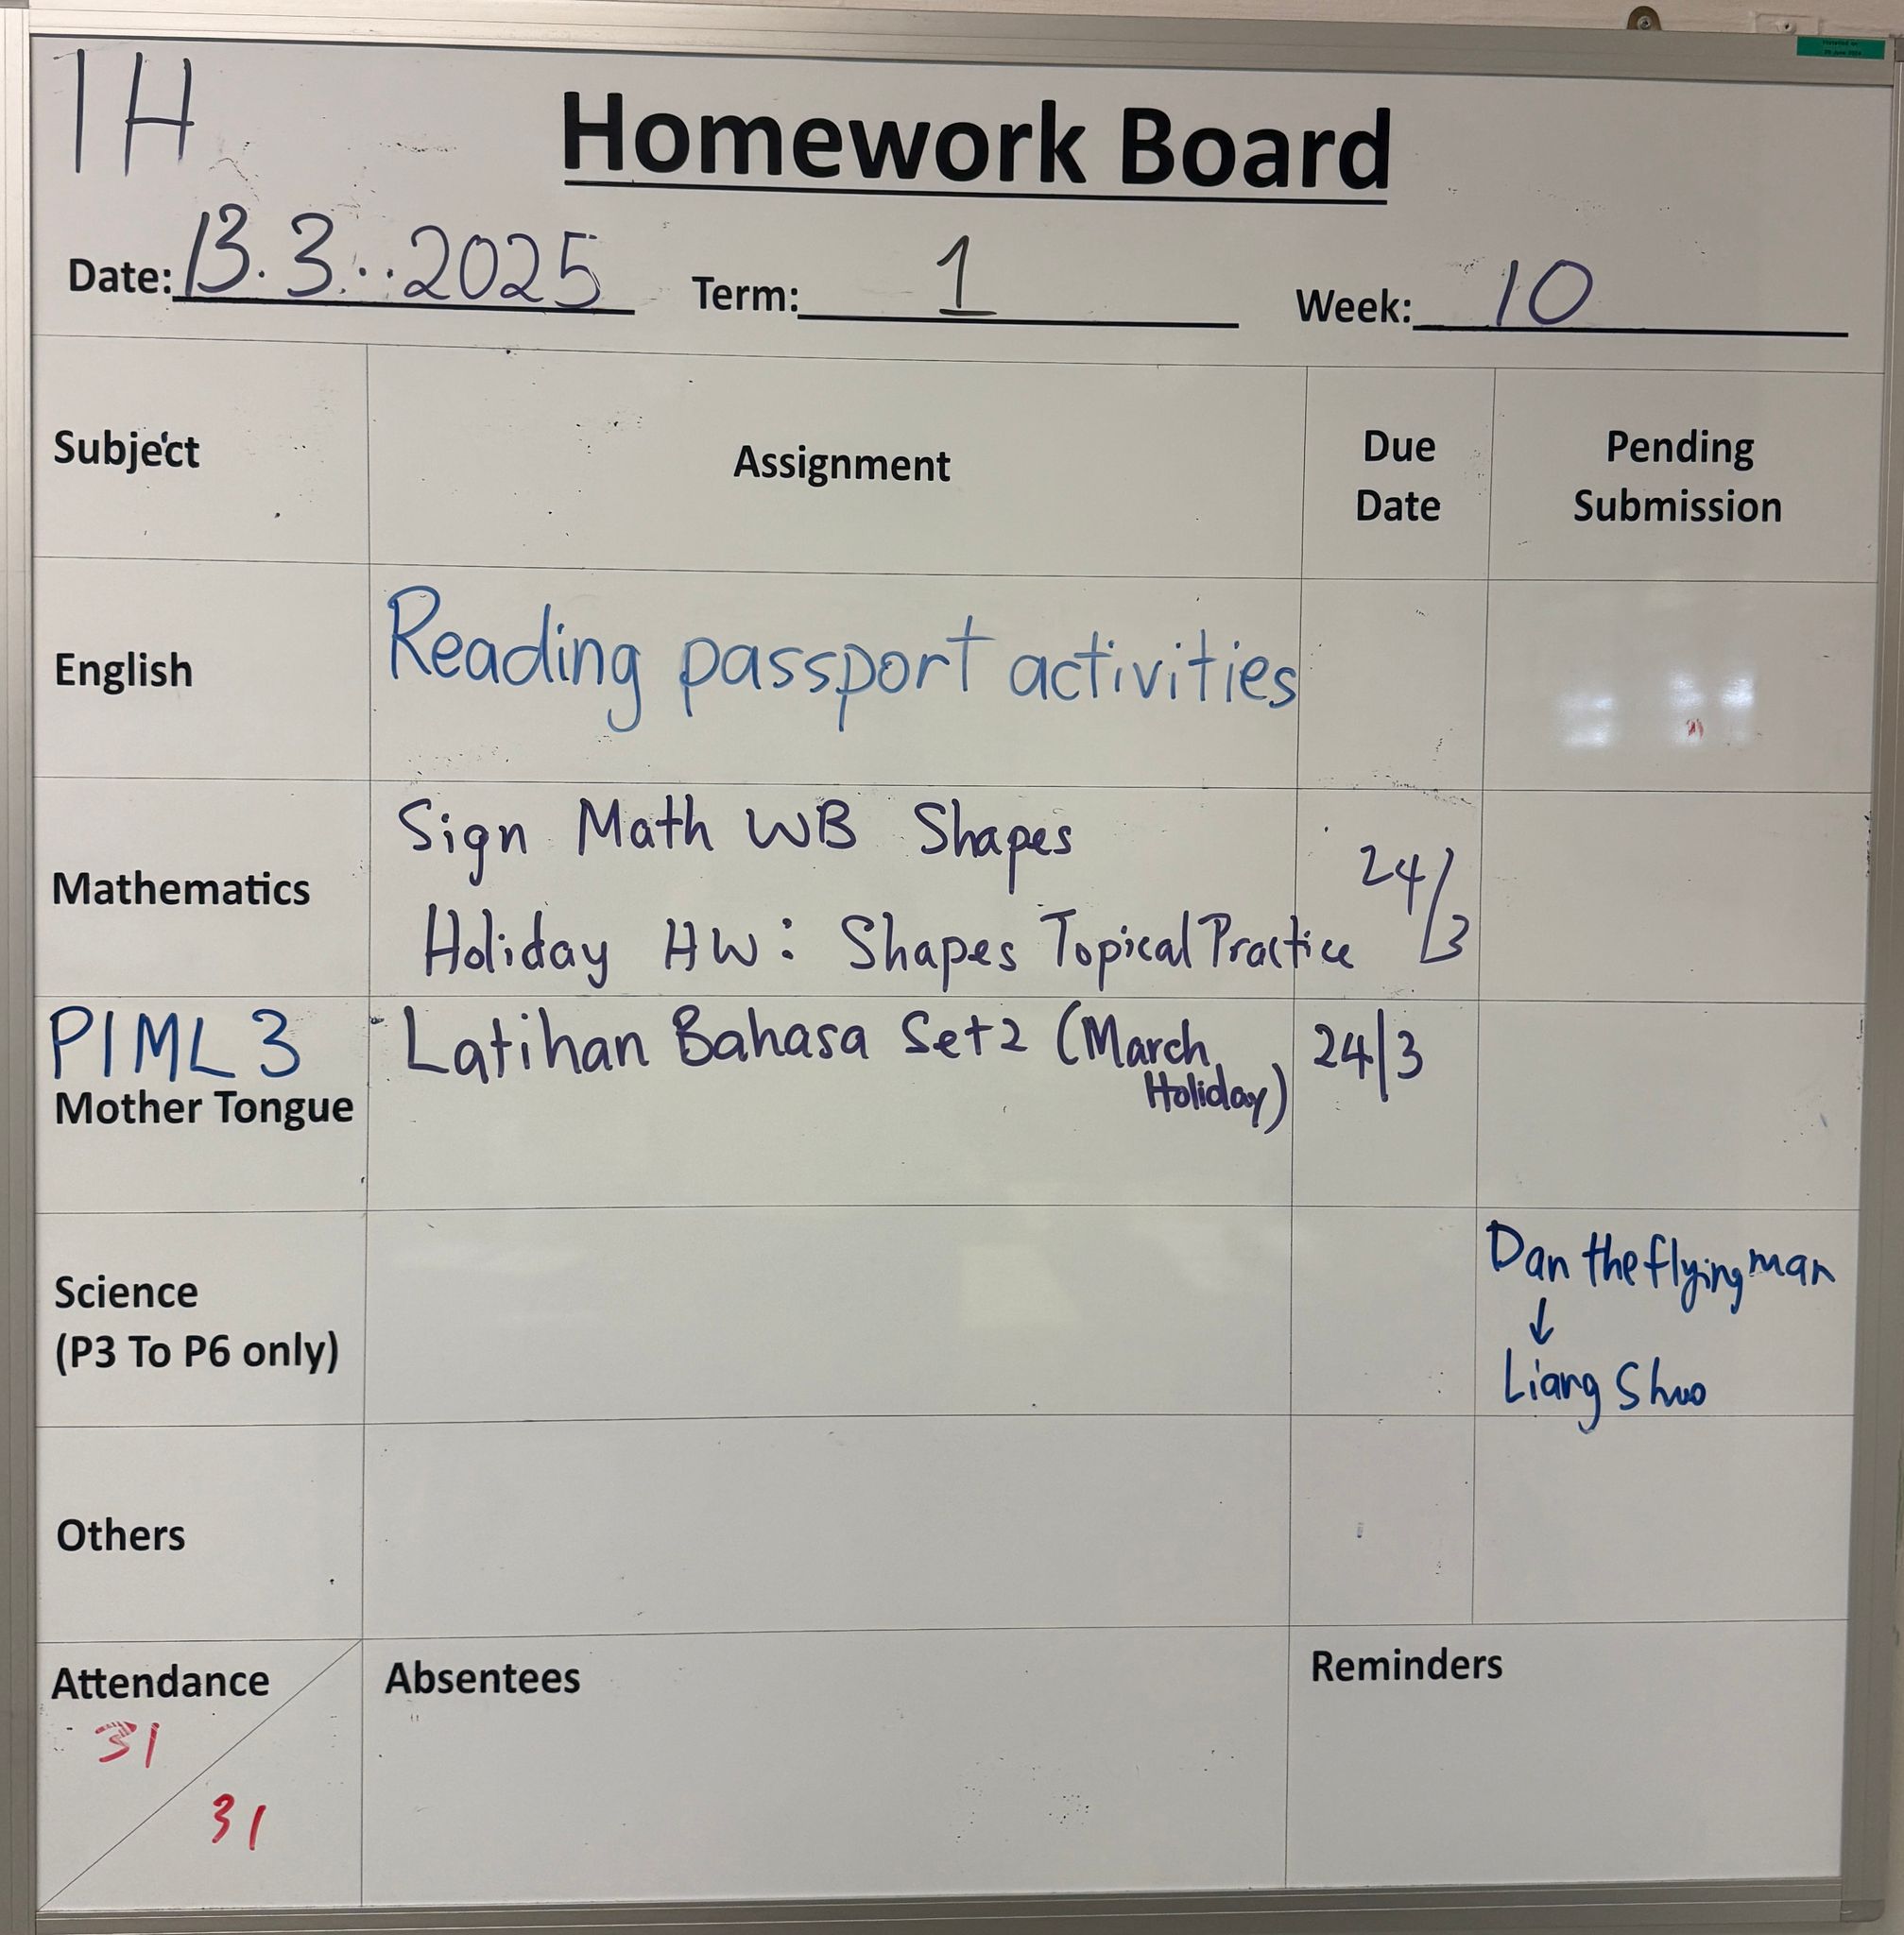 1H
Homework Board
Date: 13.3..2025 Term: 1 Week: 10
Subject Assignment Due Date Pending Submission
English Reading passport activities
Mathematics Sign Math WB Shapes
Holiday HW: Shapes Topical Practice 24/3
PIML 3
Mother Tongue Latihan Bahasa Set 2 (March Holiday) 24/3
Science
(P3 To P6 only)
Dan the flying man
↓
Liang Shuo
Others
Attendance Absentees Reminders
31
31